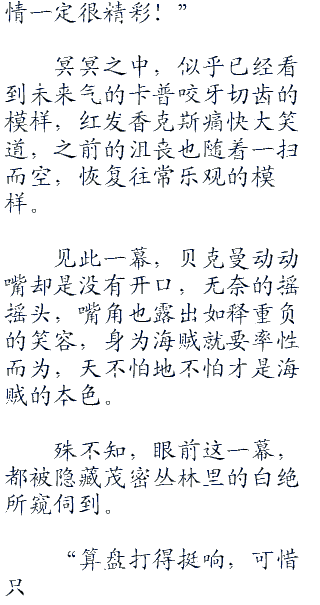 情一定很精彩！”
冥冥之中，似乎已经看
到未来气的卡普咬牙切齿的
模样，红发香克斯痛快大笑
道，之前的沮丧也随着一扫
而空，恢复往常乐观的模
样。
见此一幕，贝克曼动动
嘴却是没有开口，无奈的摇
摇头，嘴角也露出如释重负
的笑容，身为海贼就要率性
而为，天不怕地不怕才是海
贼的本色。
殊不知，眼前这一幕，
都被隐藏茂密丛林里的白绝
所窥伺到。
“算盘打得挺响，可惜
只